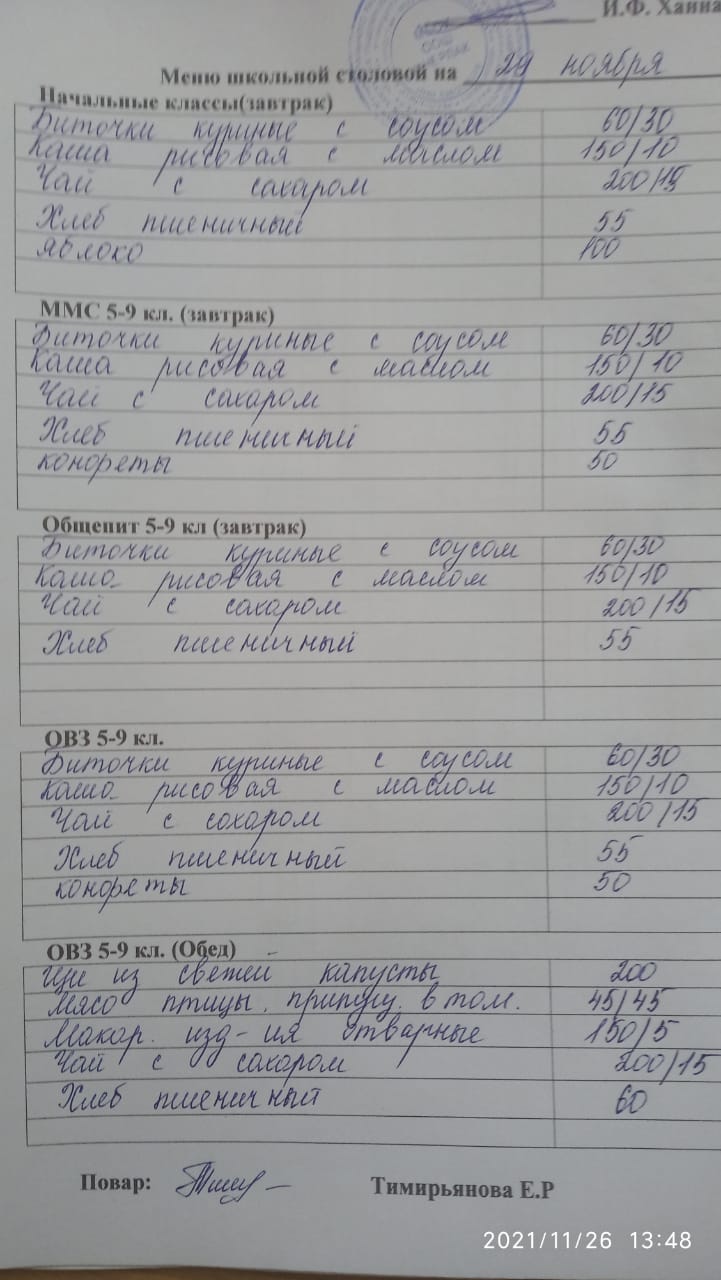 И.Ф. Ханна
Меню школьной столовой на 29 ноября
Начальные классы(завтрак)
Биточки куриные с соусом 60/30
Каша рисовая с маслом 150/10
Чай с сахаром 200/15
Хлеб пшеничный 55
яблоко 100
ММС 5-9 кл. (завтрак)
Биточки куриные с соусом 60/30
Каша рисовая с маслом 150/10
Чай с сахаром 200/15
Хлеб пшеничный 55
конфеты 50
Общепит 5-9 кл (завтрак)
Биточки куриные с соусом 60/30
Каша рисовая с маслом 150/10
Чай с сахаром 200/15
Хлеб пшеничный 55
ОВЗ 5-9 кл.
Биточки куриные с соусом 60/30
Каша рисовая с маслом 150/10
Чай с сахаром 200/15
Хлеб пшеничный 55
конфеты 50
ОВЗ 5-9 кл. (Обед)
Щи из свежей капусты 200
Мясо птицы. припущ. в том. 45/45
Макор. изд-ия отварные 150/5
Чай с сахаром 200/15
Хлеб пшеничный 60
Повар: Тимирьянова Е.Р
2021/11/26 13:48